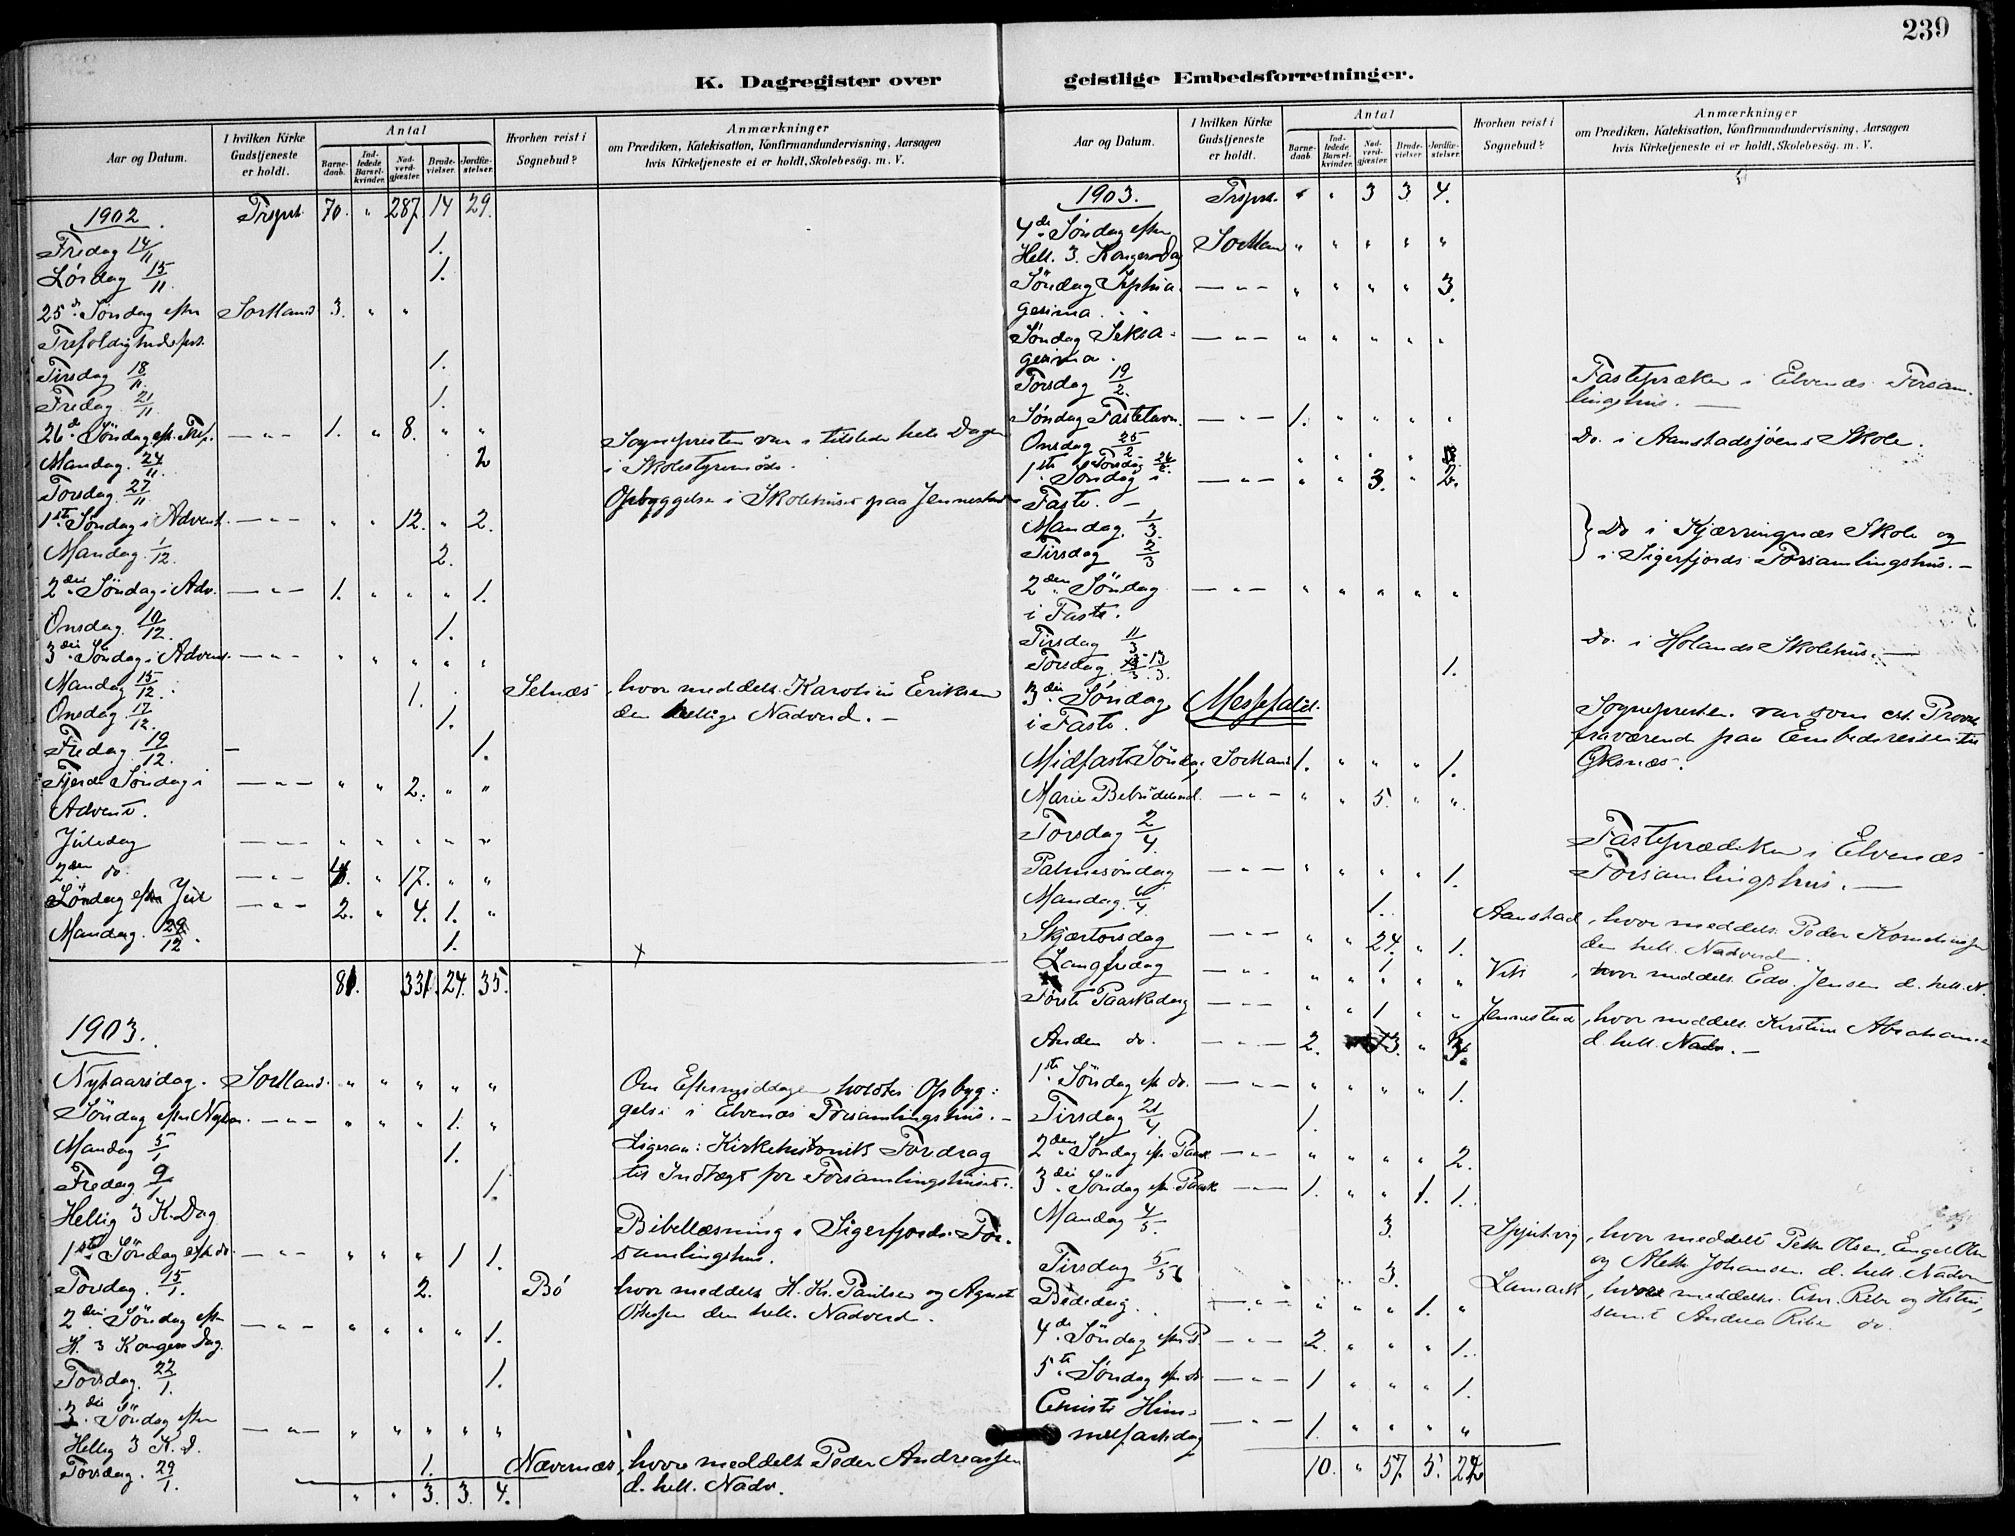 239
K. Dagregister over
geistlige Embedsforretninger.
Aar og Datum.
I hvilken Kirke Gudstjeneste er holdt.
Antal
Barnedaab.
Indledede Barselkvinder.
Nadverdgjæster.
Brudevielser.
Jordfæstelser.
Hvorhen reist i Sognebud?
Anmærkninger
om Prædiken, Katekisation, Konfirmandundervisning, Aarsagen
hvis Kirketjeneste ei er holdt, Skolebesög. m. V.
1902. Trsprt. 70. " 287. 14 29.
Fredag 14/11 1.
Lørdag 15/11. 1.
25de Søndag efter Sortland 3. " "
Trefoldighedsfest.
Tirsdag 18/11. 1.
Fredag 21/11. 1.
26de Søndag eft. Tref. — " — 1. " 8. " " Sognepresten var i tilstede hele Dagen
Mandag. 24/11. 2 i Skolestyremøde.
Torsdag 27/11 Opbyggelse i Skolehuset paa Jennestad
1ste Søndag i Advent. — " — " " 12. " 2.
Mandag. 1/12. 2.
2den Søndag i Adv. — " — 1. " " " 1.
Onsdag. 10/12. 1.
3die Søndag i Advent. — " — " " " " "
Mandag 15/12. 1. Selnæs, hvor meddelt Karoline Eriksen
Onsdag. 17/12. 1. den hellige Nadverd. —
Fredag 19/12. 1.
Fjerde Søndag i — " — " " 2. " "
Advent.
Juledag — " — " " " " "
2den do. — " — 4. " 17. " "
Søndag efter Jul — " — 2. " 4. 1. "
Mandag. 29/12. 1.
81. 331. 24. 35.
1903.
Nytaarsdag. Sortland. " " " " " Om Eftermiddagen holdtes Opbyg-
Søndag efter Nytaar. — " — " " " 1. " gelse i Elvenæs Forsamlingshus. —
Mandag 5/1 1. Ligesaa: Kirkehistorisk Foredrag
Fredag 9/1 1. til Indtægt for Forsamlingshuset.
Hellig 3 K. Dag
1ste Søndag eft. do. — " — " " " 1 1. Bibellæsning i Sigerfjords For-
samlingshus.
Torsdag. 15/1. 2. Bø hvor meddelt H. Kr. Paulsen og Agnet
2den Søndag efter — " — " " " " 1. den hell. Nadverd.
H. 3 Kongers Dag.
Torsdag. 22/1. 1.
3die Søndag efter — " — " " " " "
Hellig 3 K. D.
Torsdag. 29/1. 1. Nævernæs, hvor meddelt Peder Andreassen
" " 3. 3. 4. d. hell. Nadv.
Aar og Datum.
I hvilken Kirke Gudstjeneste er holdt.
Antal
Barnedaab.
Indledede Barselkvinder.
Nadverdgjæster.
Brudevielser.
Jordfæstelser.
Hvorhen reist i Sognebud?
Anmærkninger
om Prædiken, Katekisation, Konfirmandundervisning, Aarsagen
hvis Kirketjeneste ei er holdt, Skolebesög. m. V.
1903. Trsprt. " " 3 3. 4.
4de Søndag efter
Hell. 3. Kongers Dag Sortland " " " " "
Søndag Septua- — " — " " " " 3.
gesima.
Søndag Seksa- — " — " " " " "
gesima.
Torsdag 19/2. Fastepræken i Elvenæs Forsam-
lingshus. —
Søndag Fastelavn. — " — 1. " " " "
Onsdag 25/2 Do. i Aanstadsjøens Skole.
Torsdag 26/2.
1ste Søndag i — " — " " 3. " 2.
Faste. —
Mandag. 2/3. Do i Kjærringnæs Skole og
Tirsdag 3/3 i Sigerfjords Forsamlingshus. —
2den Søndag — " — " " " " "
i Faste.
Tirsdag 11/3 Do. i Holands Skolehus. —
Torsdag. 13/3. 1.
3die Søndag Messefald. Sognepresten var som cst. Provst
i Faste. fraværende paa Embedsreise til
Øksnæs.
Midfaste Søndag Sortland 1. " " " 1.
Marie Bebudelsesd. — " — " " 5. " "
Torsdag 2/4. Fasteprædiken i Elvenæs
Forsamlingshus. —
Palmesøndag — " — " " " " 1.
Mandag. 6/4. 1. Aanstad, hvor meddelt Peder Kornelius
den hell. Nadverd.
Skjærtorsdag — " — " " 24. " 1.
Langfredag — " — " " 1 " " Vik, hvor meddelt Edv. Jensen d. hell. N.
Første Paaskedag — " — " " 1 " " Jennestad, hvor meddelt Kirstine Abrahams
d. hell. Nadv. —
Anden do. — " — 2. 13. "
1ste Søndag eft. do. — " — " " " " 1.
Tirsdag 21/4 1.
2den Søndag eft. Paask — " — " " " " 2.
3die Søndag eft. Paask — " — 1. " " 1. 1.
Mandag 4/5. 3. hvor meddelt Petter Olsen, Engel Olsen
og Johansen d. hell. Nadver
Tirsdag 5/5 3. Lamark, hvor meddelt Chr. Ribe og Hstru,
samt Andrea Ribe do.
Bededag. — " — " " " 1. "
4de Søndag efter P. — " — 2. " " " 1.
5te Søndag eft. do. — " — 1 " " " 1.
Christi Him-
melfartsdag — " — 1. " " " "
10. " 57. 5. 22